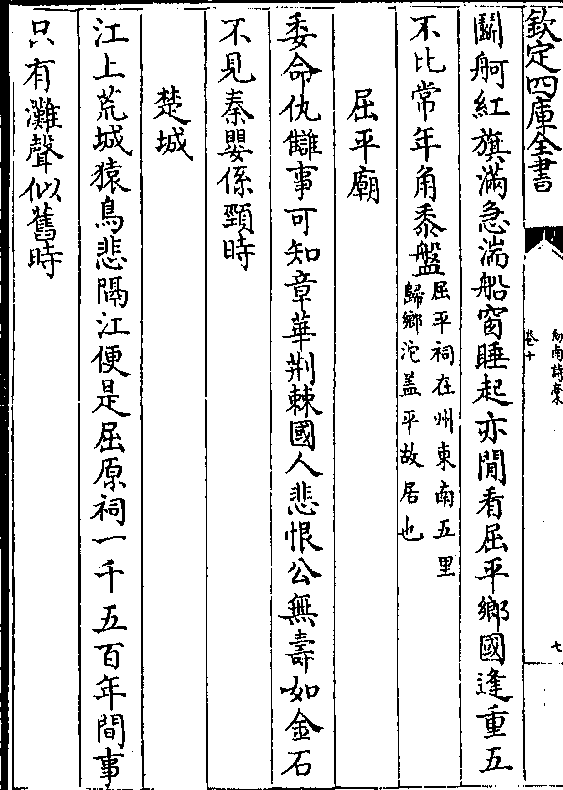 欽定四庫全書
劍南詩藁
卷十
七
鬭舸紅旗滿急湍船窗睡起亦閒看屈平鄉國逢重五
不比常年角黍盤
屈平祠在州東南五里
歸鄉沱盖平故居也
屈平廟
委命仇讎事可知章華荆棘國人悲恨公無壽如金石
不見秦嬰係頸時
楚城
江上荒城猿鳥悲隔江便是屈原祠一千五百年間事
只有灘聲似舊時